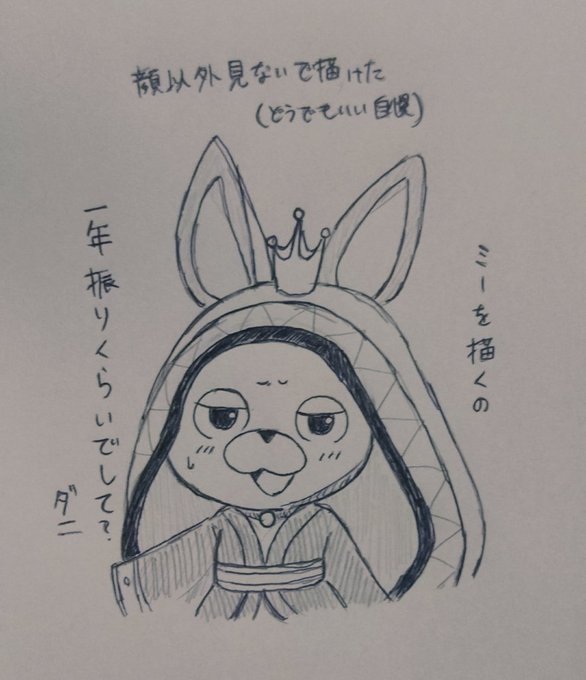 顔以外見ないで描けた
(どうでもいい自慢)
ミーを描くの
一年振りくらいでして?
ダニ